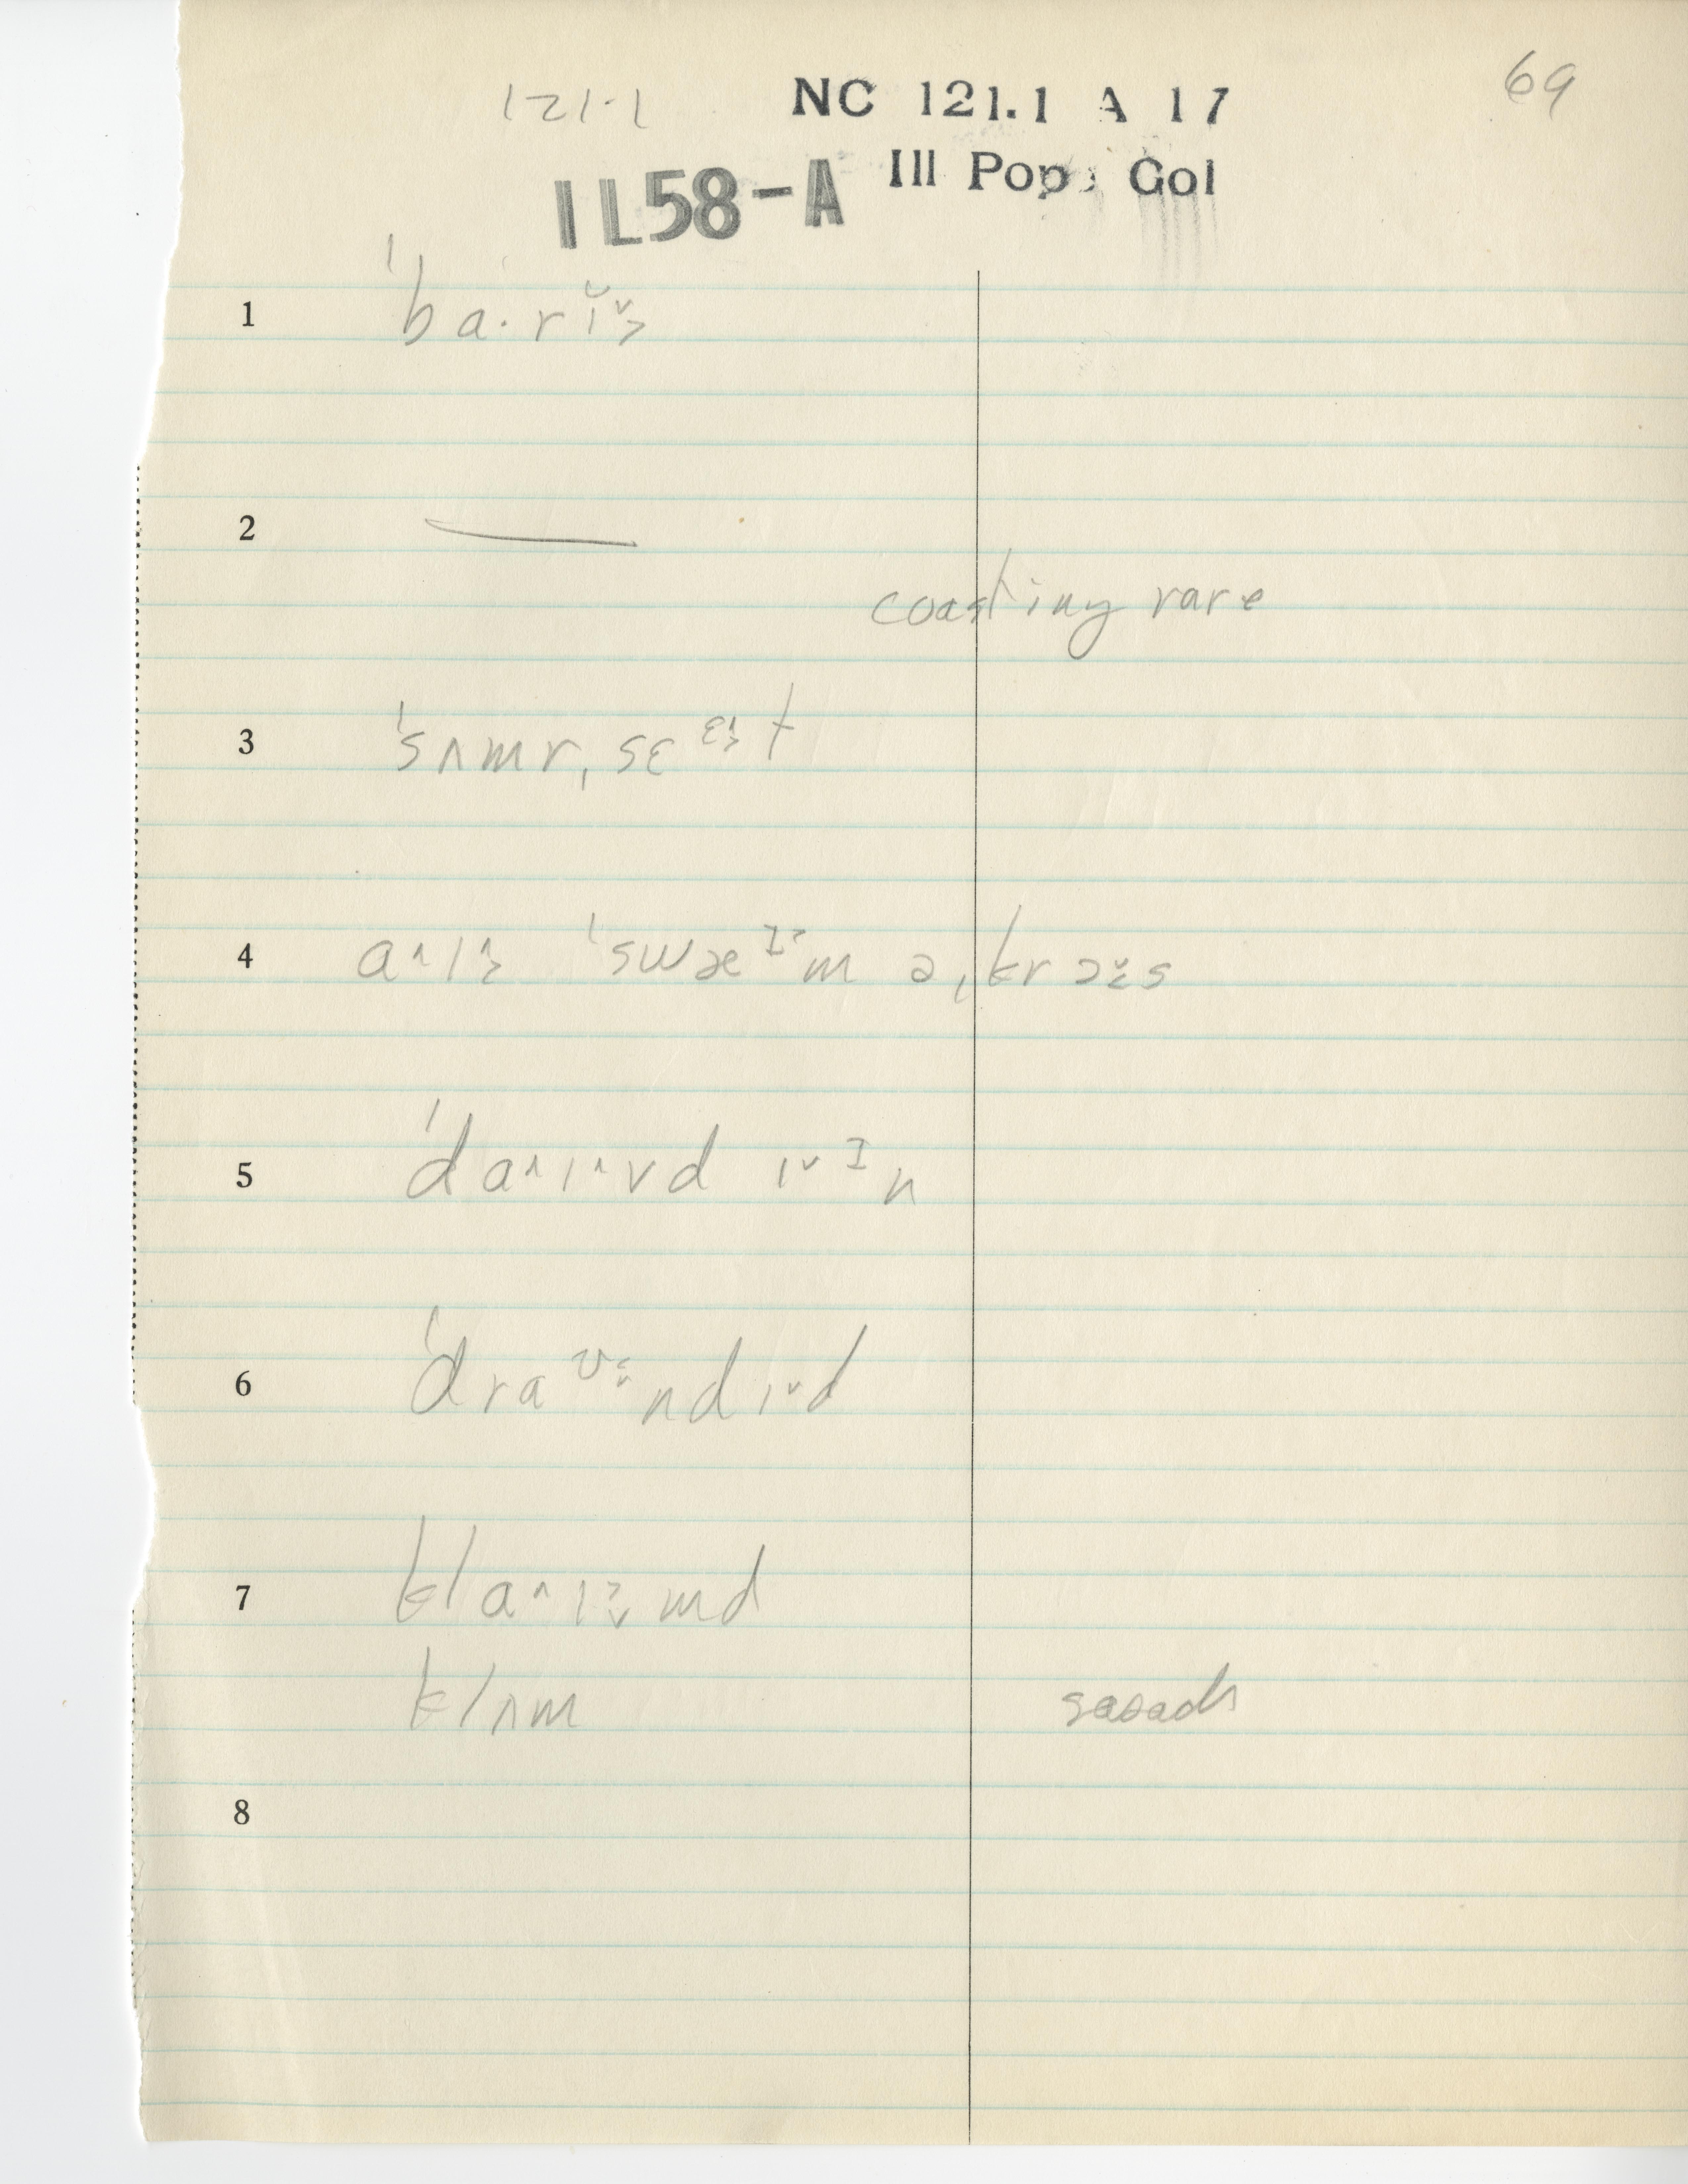 121.1 NC 121.1 A 17 69
IL58-A Ill Pop. Gol
1 ˈba·rɪ̆˅˃
2 —
coasting rare
3 ˈsʌmrˌsɛᵋ^˃t
4 a^ɪ^˃ ˈswæᴵ˃m əˌkrɔ˅ɛs
5 ˈda^ɪ^vd ɪ˅ᴵn
6 ˈdraᶷndɪ˅d
7 kla^ɪ˃˅md
klʌm
8